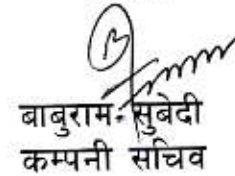 बाबुराम सुबेदी
कम्पनी सचिव